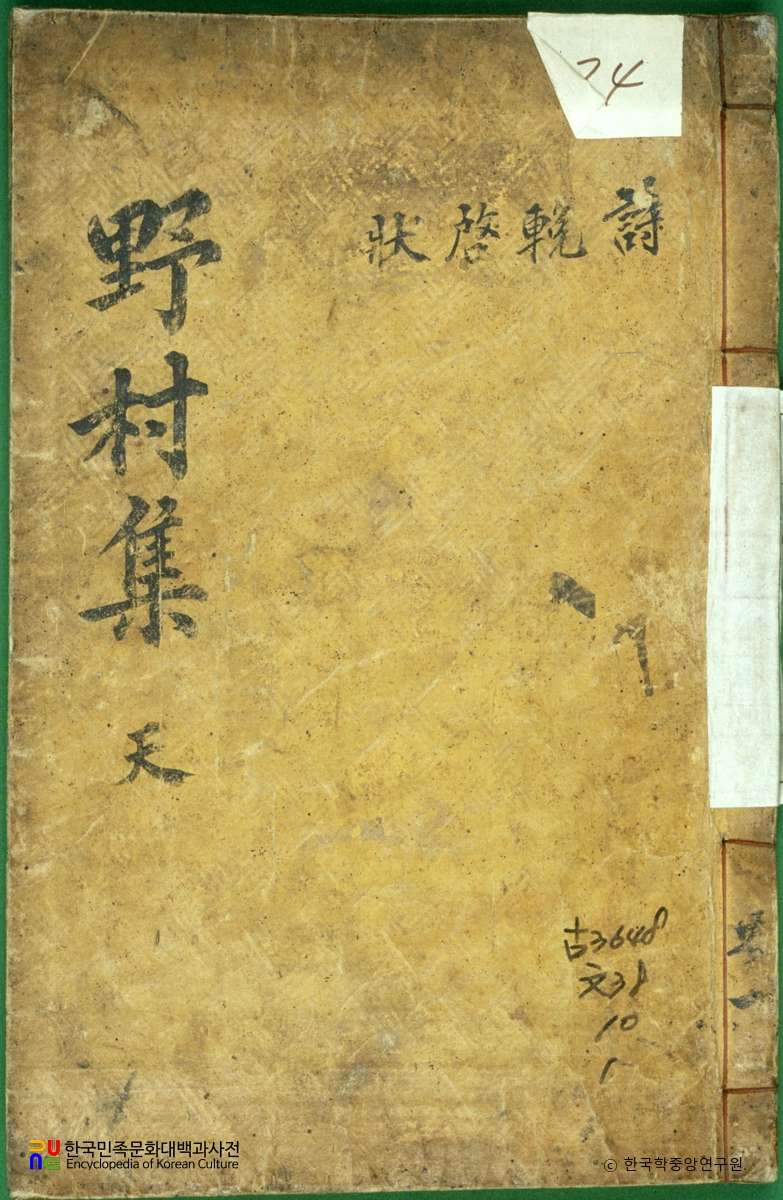 24
詩 輓 啓 狀
野村集 天
古3648
文38
10
1
한국민족문화대백과사전
Encyclopedia of Korean Culture
ⓒ 한국학중앙연구원